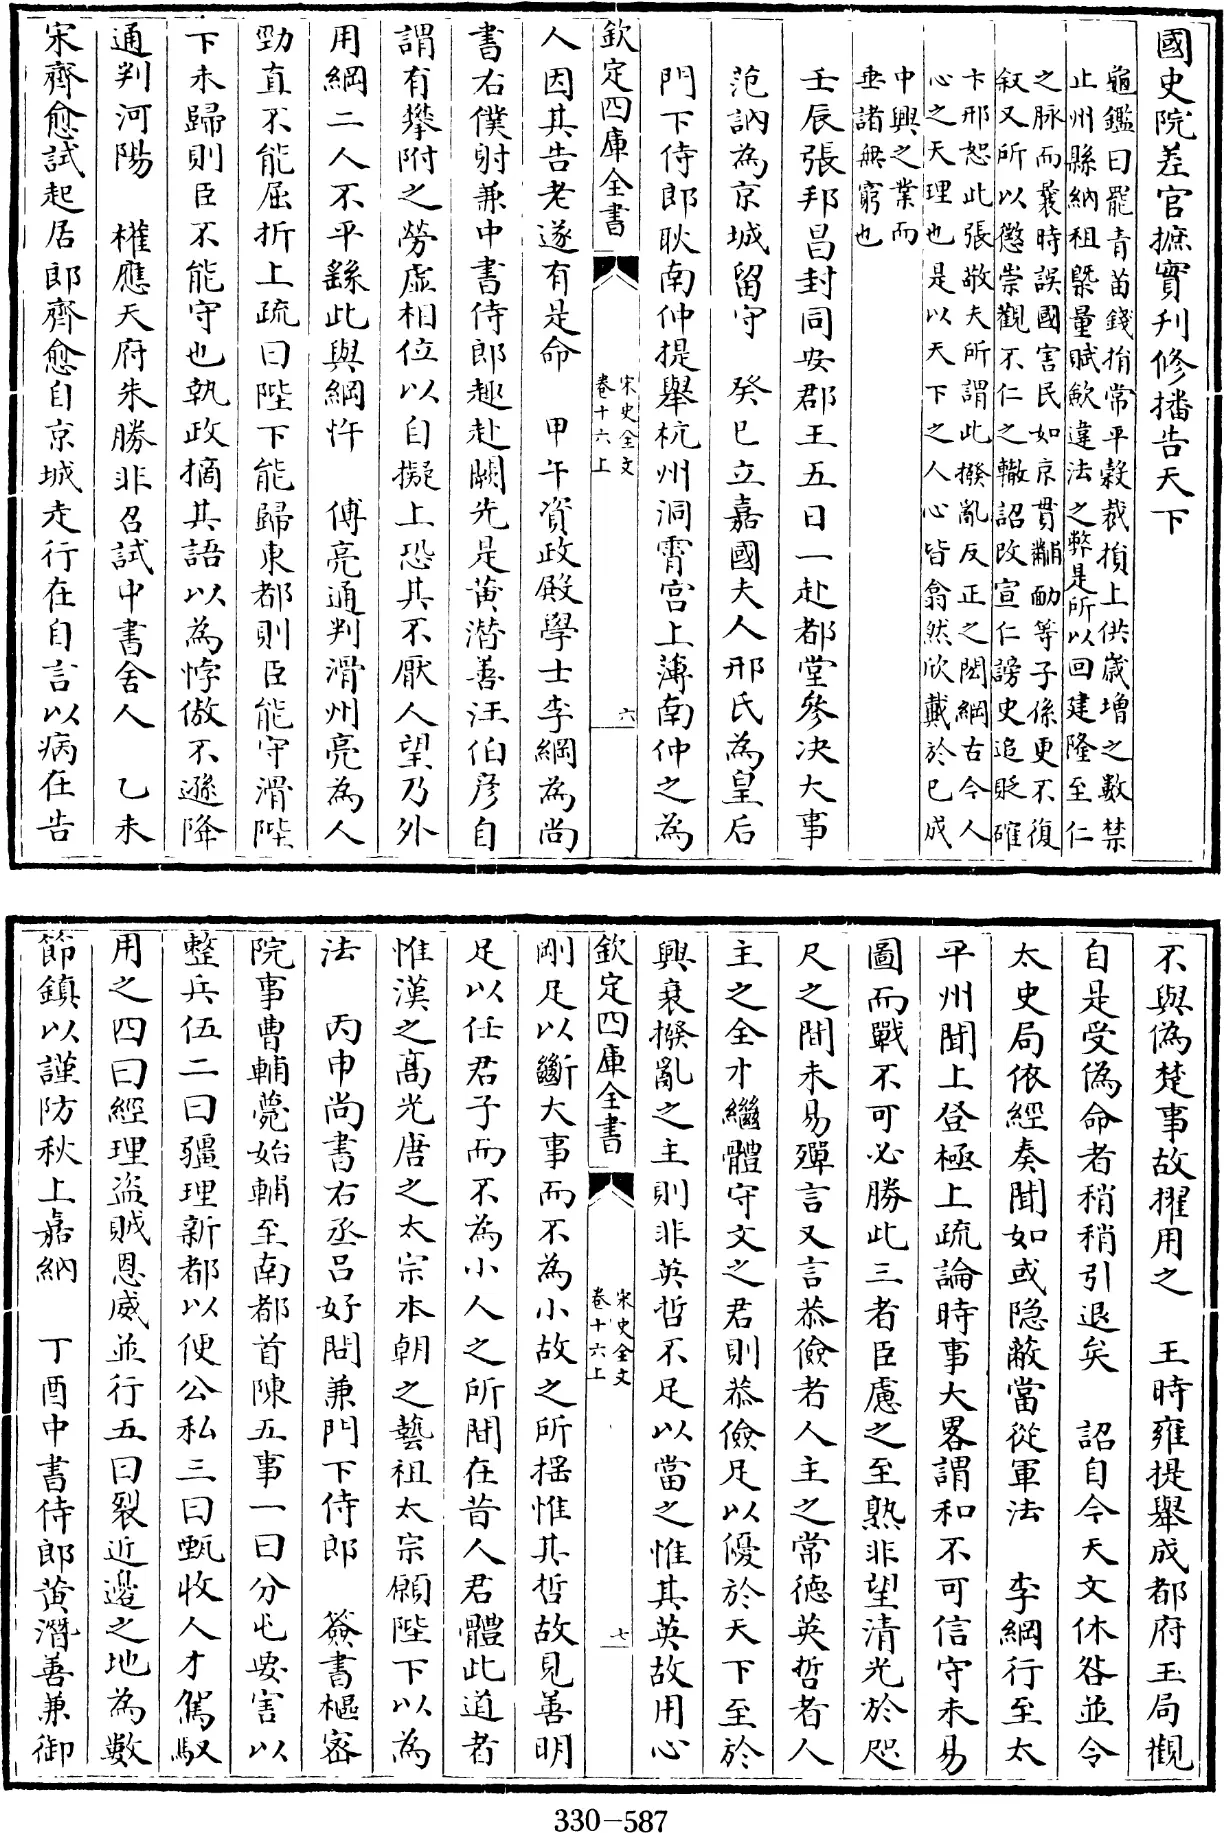 國史院差官摭實刋修播告天下
龜鑑曰罷青苗錢捐常平穀裁損上供歲增之數禁
止州縣納租槩量賦歛違法之弊是所以回建隆至仁
之脉而曩時誤國害民如京貫黼勔等子係更不復
叙又所以懲崇觀不仁之轍詔改宣仁謗史追貶確
卞邢恕此張敬夫所謂此撥亂反正之閎綱古今人
心之天理也是以天下之人心皆翕然欣戴於已成
中興之業而
垂諸無窮也
壬辰張邦昌封同安郡王五日一赴都堂參决大事
范訥為京城留守　癸巳立嘉國夫人邢氏為皇后
門下侍郎耿南仲提舉杭州洞霄宫上薄南仲之為
欽定四庫全書
宋史全文
卷十六上
六
人因其告老遂有是命　甲午資政殿學士李綱為尚
書右僕射兼中書侍郎趣赴闕先是黄潜善汪伯彦自
謂有攀附之勞虚相位以自擬上恐其不厭人望乃外
用綱二人不平繇此與綱忤　傅亮通判滑州亮為人
勁直不能屈折上疏曰陛下能歸東都則臣能守滑陛
下未歸則臣不能守也執政摘其語以為悖傲不遜降
通判河陽　權應天府朱勝非召試中書舍人　乙未
宋齊愈試起居郎齊愈自京城走行在自言以病在告
不與偽楚事故擢用之　王時雍提舉成都府玉局觀
自是受偽命者稍稍引退矣　詔自今天文休咎並令
太史局依經奏聞如或隐蔽當從軍法　李綱行至太
平州聞上登極上疏論時事大畧謂和不可信守未易
圖而戰不可必勝此三者臣慮之至熟非望清光於咫
尺之間未易殫言又言恭儉者人主之常德英哲者人
主之全才繼體守文之君則恭儉足以優於天下至於
興衰撥亂之主則非英哲不足以當之惟其英故用心
欽定四庫全書
宋史全文
卷十六上
七
剛足以斷大事而不為小故之所揺惟其哲故見善明
足以任君子而不為小人之所間在昔人君體此道者
惟漢之高光唐之太宗本朝之藝祖太宗願陛下以為
法　丙申尚書右丞吕好問兼門下侍郎　簽書樞密
院事曹輔薨始輔至南都首陳五事一曰分屯要害以
整兵伍二曰疆理新都以便公私三曰甄收人才駕馭
用之四曰經理盗賊恩威並行五曰裂近邊之地為數
節鎮以謹防秋上嘉納　丁酉中書侍郎黄潛善兼御
330-587